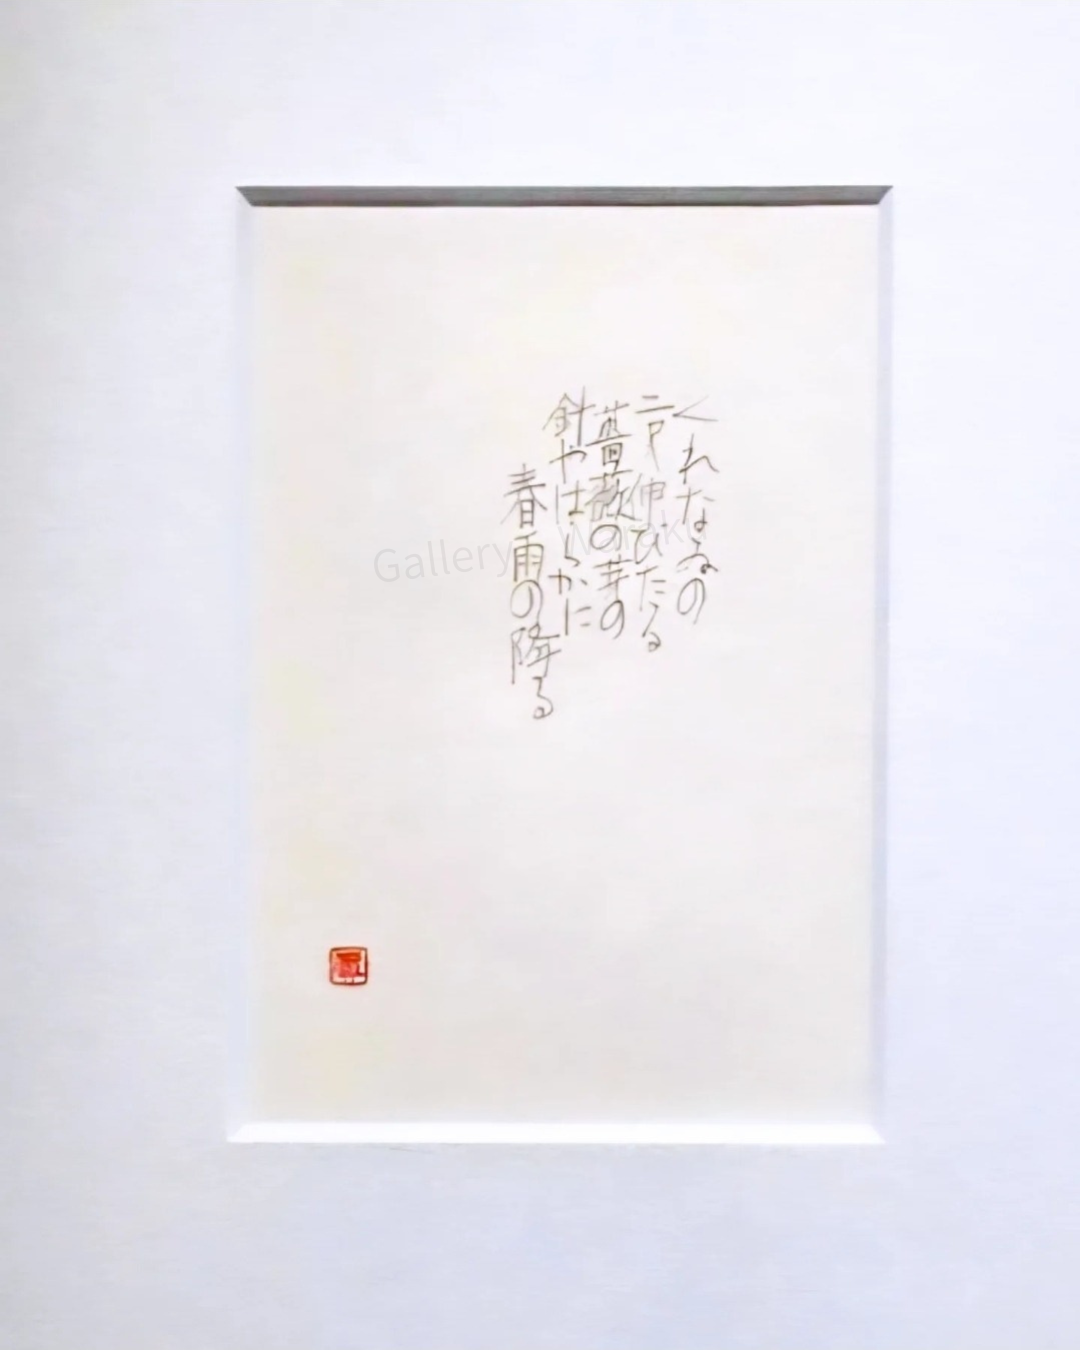 くれなゐの
二尺伸びたる
薔薇の芽の
針やはらかに
春雨の降る
Gallery